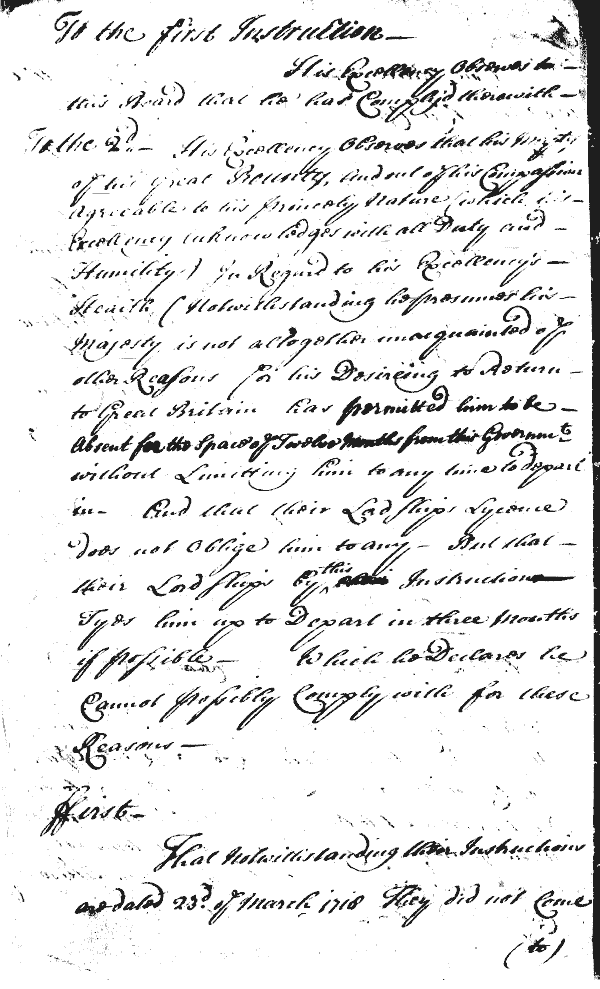 To the first Instruction —
His Excellency Observes to —
this Board that he has Complyd therewith —
To the 2d. — His Excellency Observes that his Majty
of his great Bounty, and out of his Compassion
Agreeable to his princely Nature (which his
Excellency acknowledges with all Duty and —
Humility) In Regard to his Excellency's —
Health (Notwithstanding he presumes his —
Majesty is not altogether unacquainted of
other Reasons for his Desireing to Return —
to Great Britain has permitted him to be —
Absent for the Space of Twelve Months from this Governmt
without Limitting him to any time to depart
in — And that their Lordships Lycence
does not Oblige him to any — But that —
their Lordships by this Instruction
Tyes him up to Depart in three Months
if possible — Which he Declares he
Cannot possibly Comply with for these
Reasons —
ffirst —
That Notwithstanding their Instructions
are dated 23d. of March 1718 They did not Come
(to)